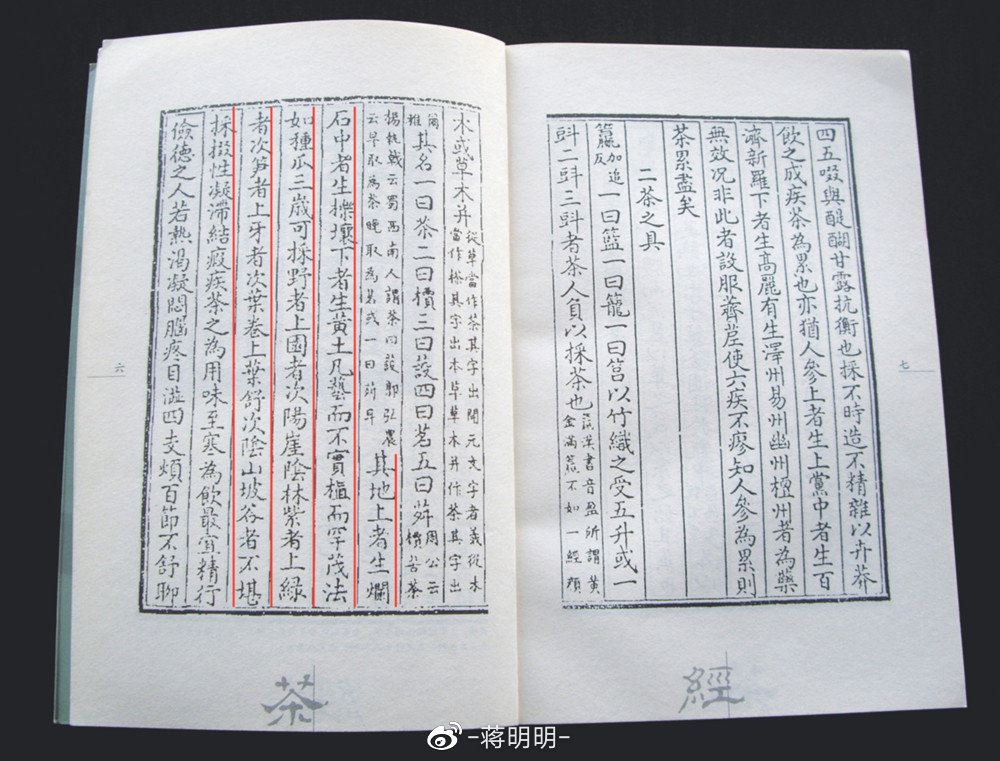 木或草木并從草當作茶其字出開元文字者義從木當作㮑其字出本草草木并作荼其字出
爾雅其名一曰茶二曰檟三曰蔎四曰茗五曰荈周公云檟苦荼
揚執戟云蜀西南人謂茶曰蔎郭弘農云早取為茶晚取為茗或一曰荈早其地上者生爛
石中者生櫟壤下者生黄土凡藝而不實植而罕茂法
如種瓜三歲可採野者上園者次陽崖隂林紫者上緑
者次笋者上牙者次葉卷上葉舒次隂山坡谷者不堪
採掇性凝滯結瘕疾茶之為用味至寒為飲最宜精行
儉德之人若熱渴凝悶腦疼目澁四支煩百節不舒聊
六
茶
四五啜與醍醐甘露抗衡也採不時造不精雜以卉莽
飲之成疾茶為累也亦猶人參上者生上黨中者生百
濟新羅下者生高麗有生澤州易州幽州檀州者為藥
無效况非此者設服薺苨使六疾不瘳知人參為累則
茶累盡矣
二茶之具
籯加追反一曰籃一曰籠一曰筥以竹織之受五升或一
㪷二㪷三㪷者茶人負以採茶也籯漢書音盈所謂黄金滿籯不如一經顔
七
經
-蒋明明-